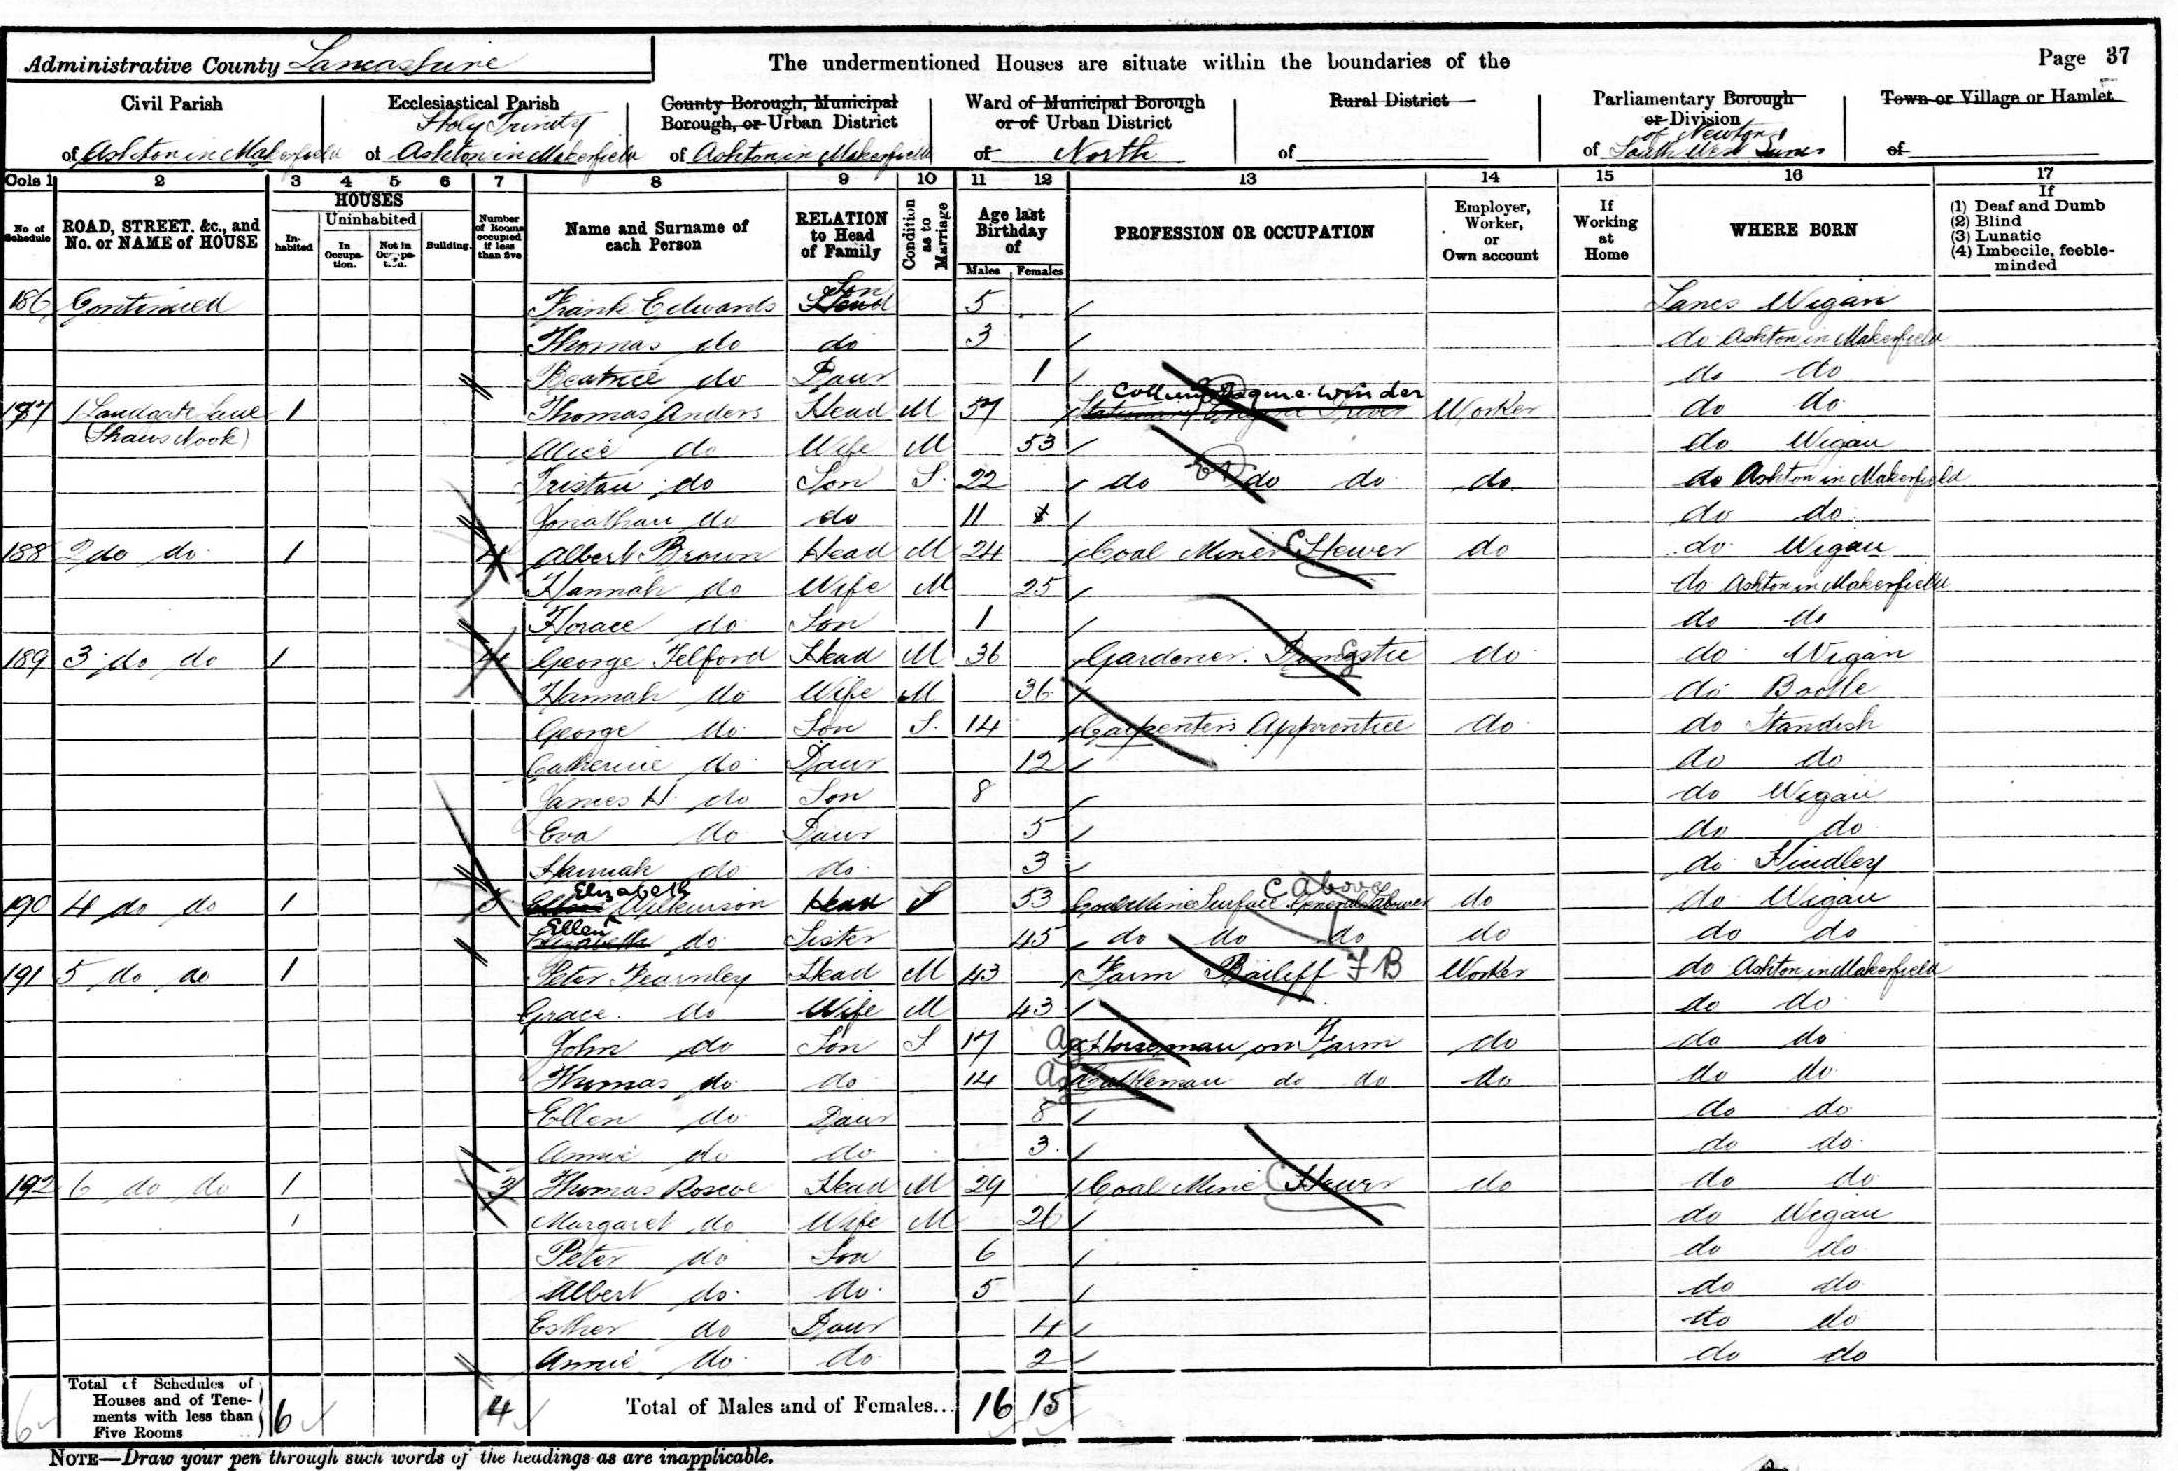 Administrative County Lancashire
The undermentioned Houses are situate within the boundaries of the
Page 37
Civil Parish
of Ashton in Makerfield
Ecclesiastical Parish
Holy Trinity
of Ashton in Makerfield
County Borough, Municipal
Borough, or Urban District
of Ashton in Makerfield
Ward of Municipal Borough
or of Urban District
of North
Rural District
of
Parliamentary Borough
or Division
of Newton
of South West Lancs
Town or Village or Hamlet
of
Cols 1 2 3 4 5 6 7 8 9 10 11 12 13 14 15 16 17
No. of Schedule
ROAD, STREET, &c., and No. or NAME of HOUSE
HOUSES
Inhabited
Uninhabited
In Occupation.
Not in Occupation.
Building.
Number of Rooms occupied if less than five
Name and Surname of each Person
RELATION to Head of Family
Condition as to Marriage
Age last Birthday of
Males Females
PROFESSION OR OCCUPATION
Employer, Worker, or Own account
If Working at Home
WHERE BORN
If
(1) Deaf and Dumb
(2) Blind
(3) Lunatic
(4) Imbecile, feeble-minded
186 Continued Frank Edwards Head Son 5 Lancs Wigan
Thomas do do 3 do Ashton in Makerfield
Beatrice do Daur 1 do do
187 1 Landgate Lane 1 Thomas Anders Head M 57 Stationary Engine Driver Engine Winder Worker do do
(Shaws Nook) Alice do Wife M 53 do Wigan
Tristan do Son S. 22 do do do do do Ashton in Makerfield
Jonathan do do 11 do do
188 2 do do 1 4 Albert Brown Head M 24 Coal Miner Hewer do do Wigan
Hannah do Wife M 25 do Ashton in Makerfield
Horace do Son 1 do do
189 3 do do 1 4 George Telford Head M 36 Gardener. Domestic do do Wigan
Hannah do Wife M 36 do Bootle
George do Son S. 14 Carpenters Apprentice do do Standish
Catherine do Daur 12 do do
James H do Son 8 do Wigan
Eva do Daur 5 do do
Hannah do do 3 do Hindley
190 4 do do 1 3 Ellen Elizabeth Wilkinson Head S 53 Coal Mine Surface General Labourer C above do do Wigan
Elizabeth Ellen do Sister 45 do do do do do do
191 5 do do 1 Peter Fearnley Head M 43 Farm Bailiff F B Worker do Ashton in Makerfield
Grace do Wife M 43 do do
John do Son S 17 Ag Horseman on Farm do do do
Thomas do do 14 Ag Cattleman do do do do do
Ellen do Daur 8 do do
Annie do do 3 do do
192 6 do do 1 3 Thomas Roscoe Head M 29 Coal Mine Hewer do do do
1 Margaret do Wife M 26 do Wigan
Peter do Son 6 do do
Albert do do 5 do do
Esther do Daur 4 do do
Annie do do 2 do do
Total of Schedules of Houses and of Tenements with less than Five Rooms 6 4 Total of Males and of Females... 16 15
NOTE—Draw your pen through such words of the headings as are inapplicable.